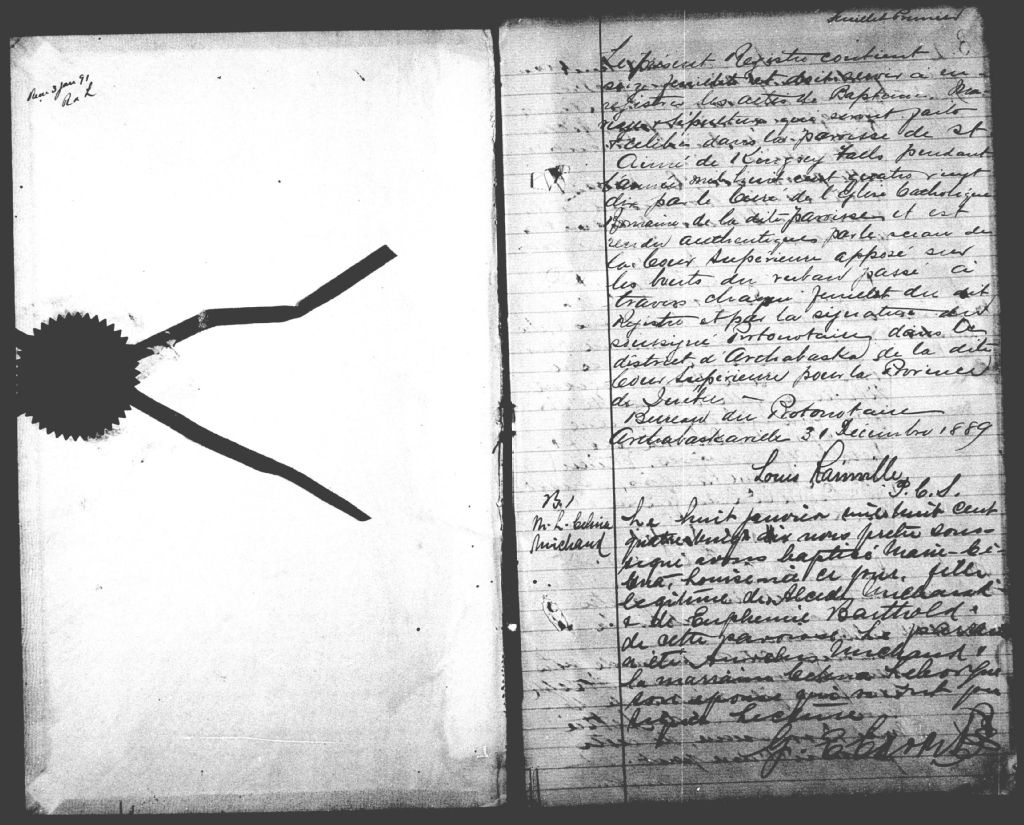 3 Jan 91
R & L
Feuillet Premier
Le présent Registre contient
seize feuillets et doit servir à en-
registrer les actes de Baptême, Ma-
riage & Sépulture qui seront faits
& célébrés dans la paroisse de St
Aimé de Kingsey Falls pendant
l'année mil huit cent quatre vingt
dix par le Curé de l'Eglise Catholique
Romaine de la dite paroisse, et est
rendu authentique par le sceau de
la Cour Supérieure apposé sur
les bouts du ruban passé à
travers chaque feuillet du dit
Registre et par la signature du
soussigné Protonotaire dans le
district d'Arthabaska de la dite
Cour Supérieure pour la Province
de Québec —
Bureau du Protonotaire
Arthabaskaville 31 Décembre 1889
Louis Rainville
P.C.S.
B. 1
M. L. Celina
Michaud
Le huit janvier mil huit cent
quatre vingt dix nous prêtre sous-
signé avons baptisé Marie Cé-
lina, Louise née ce jour, fille
légitime de Alcede Michaud
& de Euphemie Barthold
de cette paroisse. Le parrain
a été Michaud
la marraine Celina
son épouse qui n'ont pu
signer. Lecture